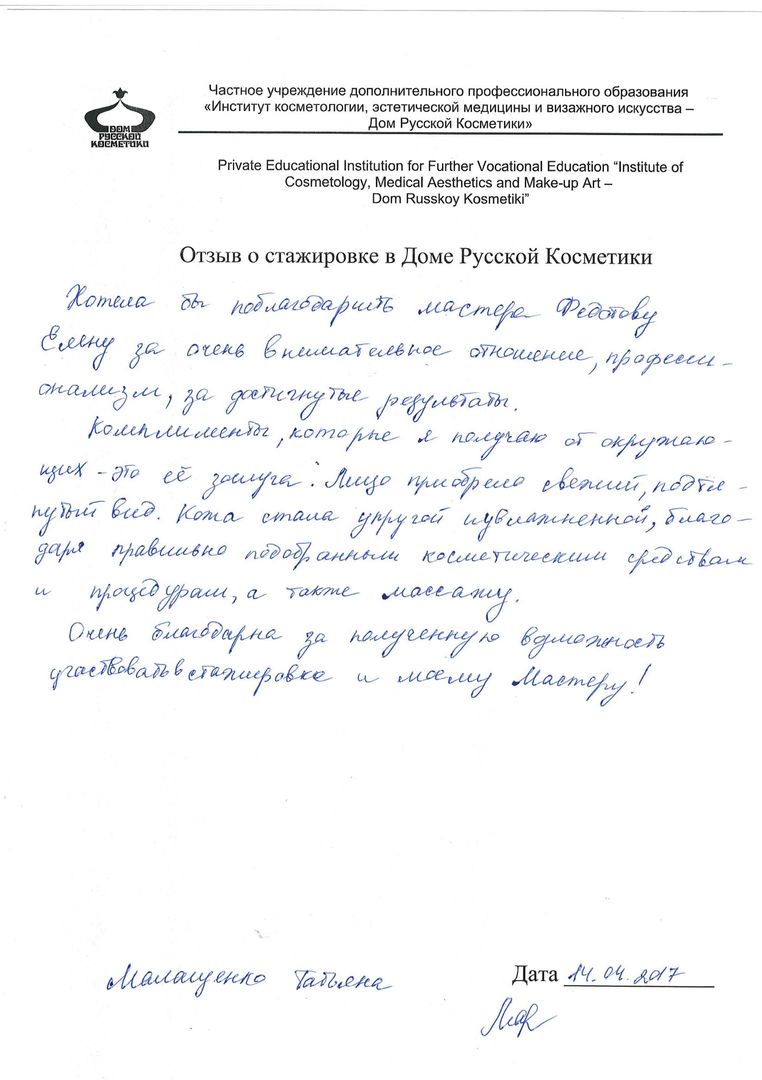 Частное учреждение дополнительного профессионального образования
«Институт косметологии, эстетической медицины и визажного искусства –
Дом Русской Косметики»
ДОМ
РУССКОЙ
КОСМЕТИКИ
Private Educational Institution for Further Vocational Education “Institute of
Cosmetology, Medical Aesthetics and Make-up Art –
Dom Russkoy Kosmetiki”
Отзыв о стажировке в Доме Русской Косметики
Хотела бы поблагодарить мастера Федотову
Елену за очень внимательное отношение, професси-
онализм, за достигнутые результаты.
Комплименты, которые я получаю от окружаю-
щих - это её заслуга. Лицо приобрело свежий, подтя-
нутый вид. Кожа стала упругой и увлажненной, благо-
даря правильно подобранным косметическим средствам
и процедурам, а также массажу.
Очень благодарна за полученную возможность
участвовать в стажировке и моему Мастеру!
Малащенко Татьяна
Дата 14.04.2017